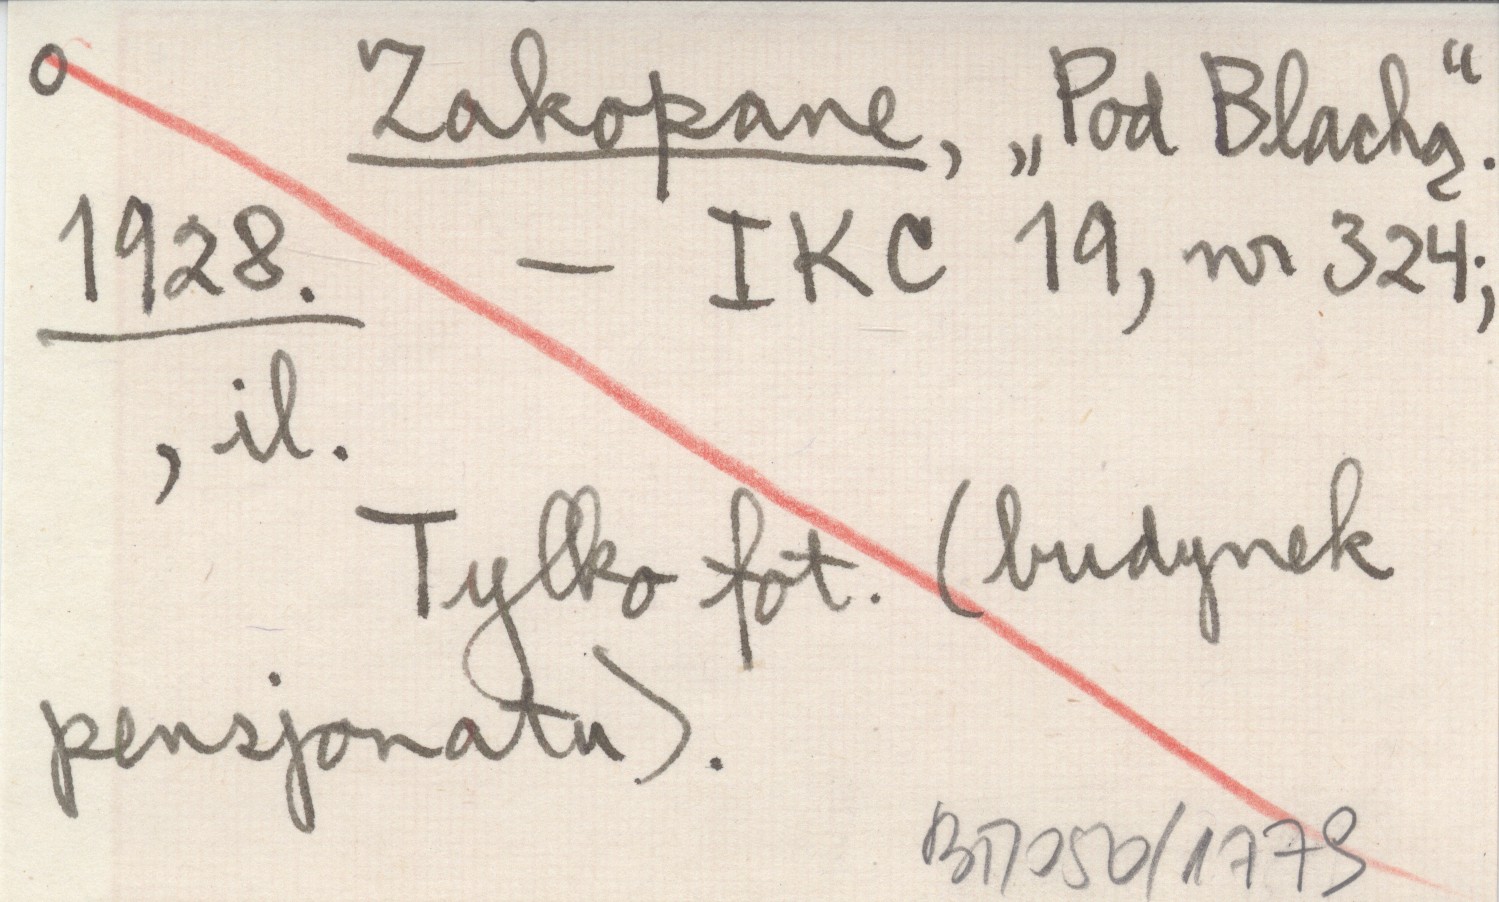 o Zakopane, „Pod Blachą“.
1928. — IKC 19, nr 324;
, il.
Tylko fot. (budynek
pensjonatu).